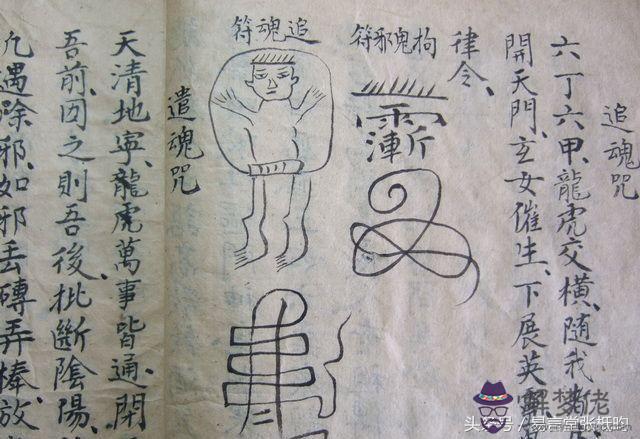 追魂咒
六丁六甲、龍虎交橫、隨我
開天門、玄女催生、下展英
律令、
拘鬼邪符
追魂符
遣魂咒
天清地寧、龍虎萬事皆通、閉
吾前、因之則吾後、批斷陰陽、
凡遇除邪、如邪丢磚弄棒、放
头条号 / 易言堂张